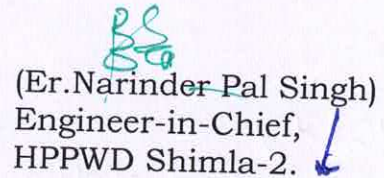 (Er.Narinder Pal Singh)
Engineer-in-Chief,
HPPWD Shimla-2.